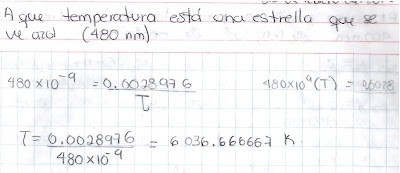 A que temperatura está una estrella que se
ve azul (480 nm)
480x10⁻⁹ = 0.0028976 / T
T = 0.0028976 / 480x10⁻⁹ = 6 036.666667 K.